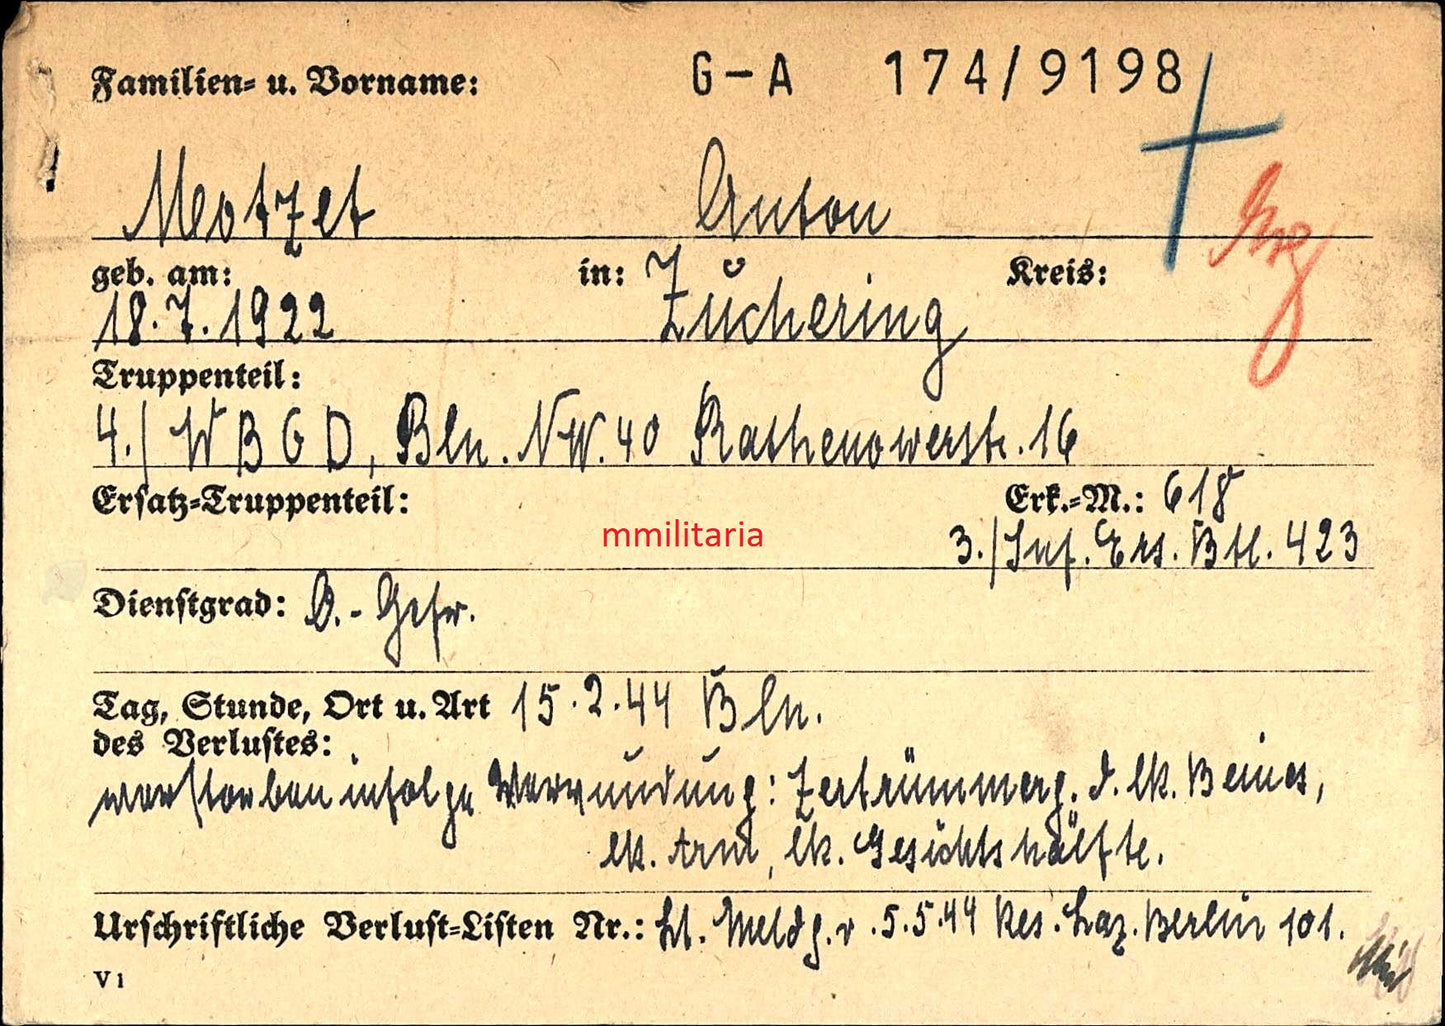 Familien= u. Vorname: G-A 174/9198
Motzet Anton
geb. am: in: Kreis:
18.7.1922 Zuchering
Truppenteil:
4./ W B G D, Bln. NW. 40 Rathenowerstr. 16
Ersatz=Truppenteil: Erk.=M.: 618
mmilitaria
3./Inf. Ers. Btl. 423
Dienstgrad: O.-Gefr.
Tag, Stunde, Ort u. Art 15.2.44 Bln.
des Verlustes:
verstorben infolge Verwundung: Zertrümmerg. d. lk. Beines,
lk. Arm, lk. Gesichtshälfte.
Urschriftliche Verlust=Listen Nr.: lt. Meldg. v. 5.5.44 Res. Laz. Berlin 101.
V 1